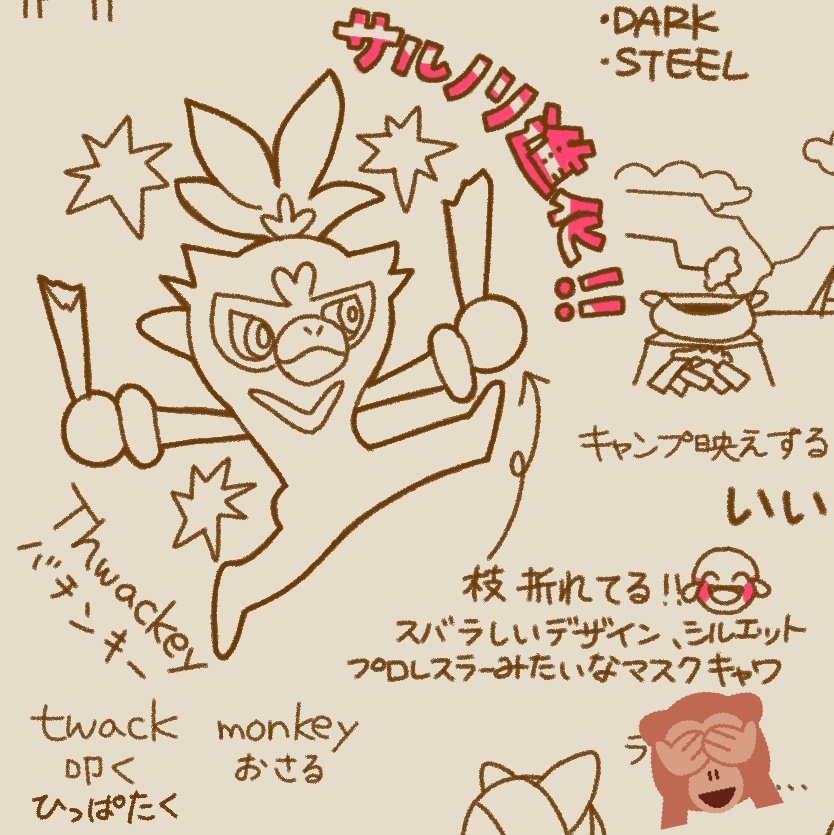 ・DARK
・STEEL
サルノリ進化!!
キャンプ映えする
いい
Thwackey
バチンキー
枝 折れてる!!
スバラしいデザイン、シルエット
プロレスラーみたいなマスクキャワ
twack
叩く
ひっぱたく
monkey
おさる
ラ
...